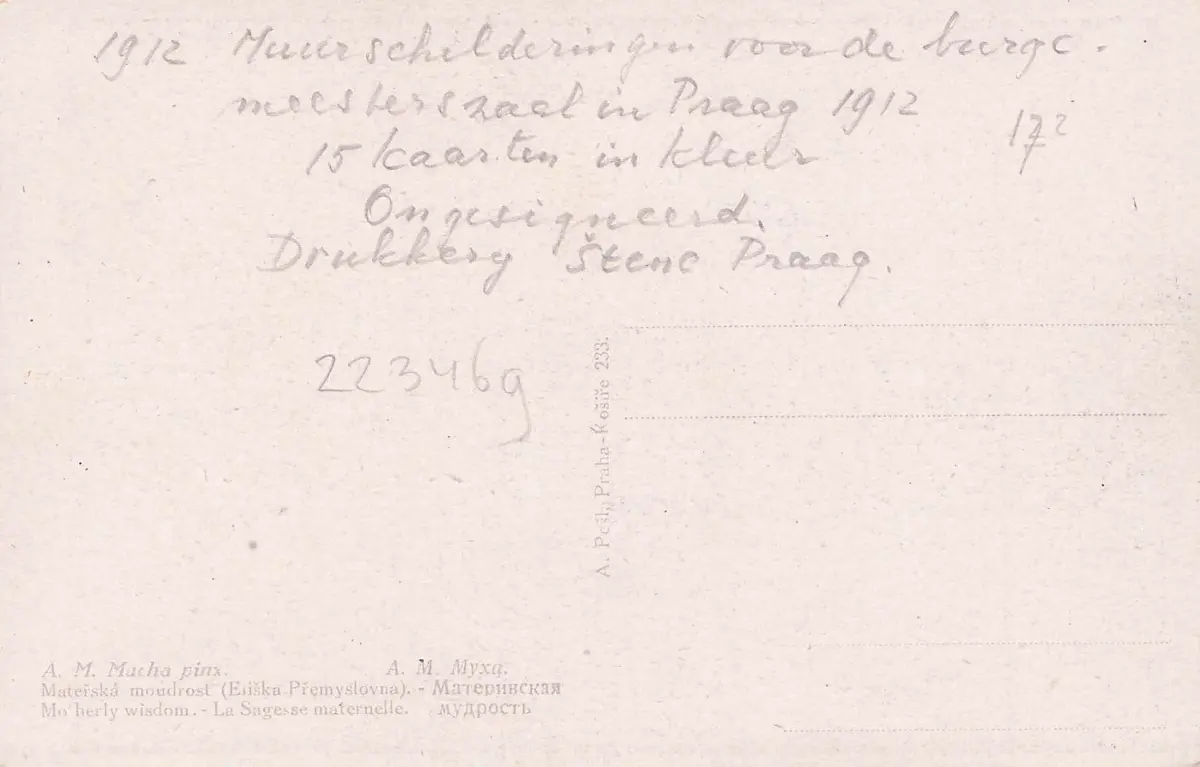 1912 Muurschilderingen voor de burge-
meesterszaal in Praag 1912
172
15 kaarten in kleur
Ongesigneerd.
Drukkery Štenc Praag.
223469
A. Pešl, Praha-Košíře 233.
A. M. Mucha pinx. А. М. Муха.
Mateřská moudrost (Eliška Přemyslovna). - Материнская
Mo herly wisdom. - La Sagesse maternelle. мудрость